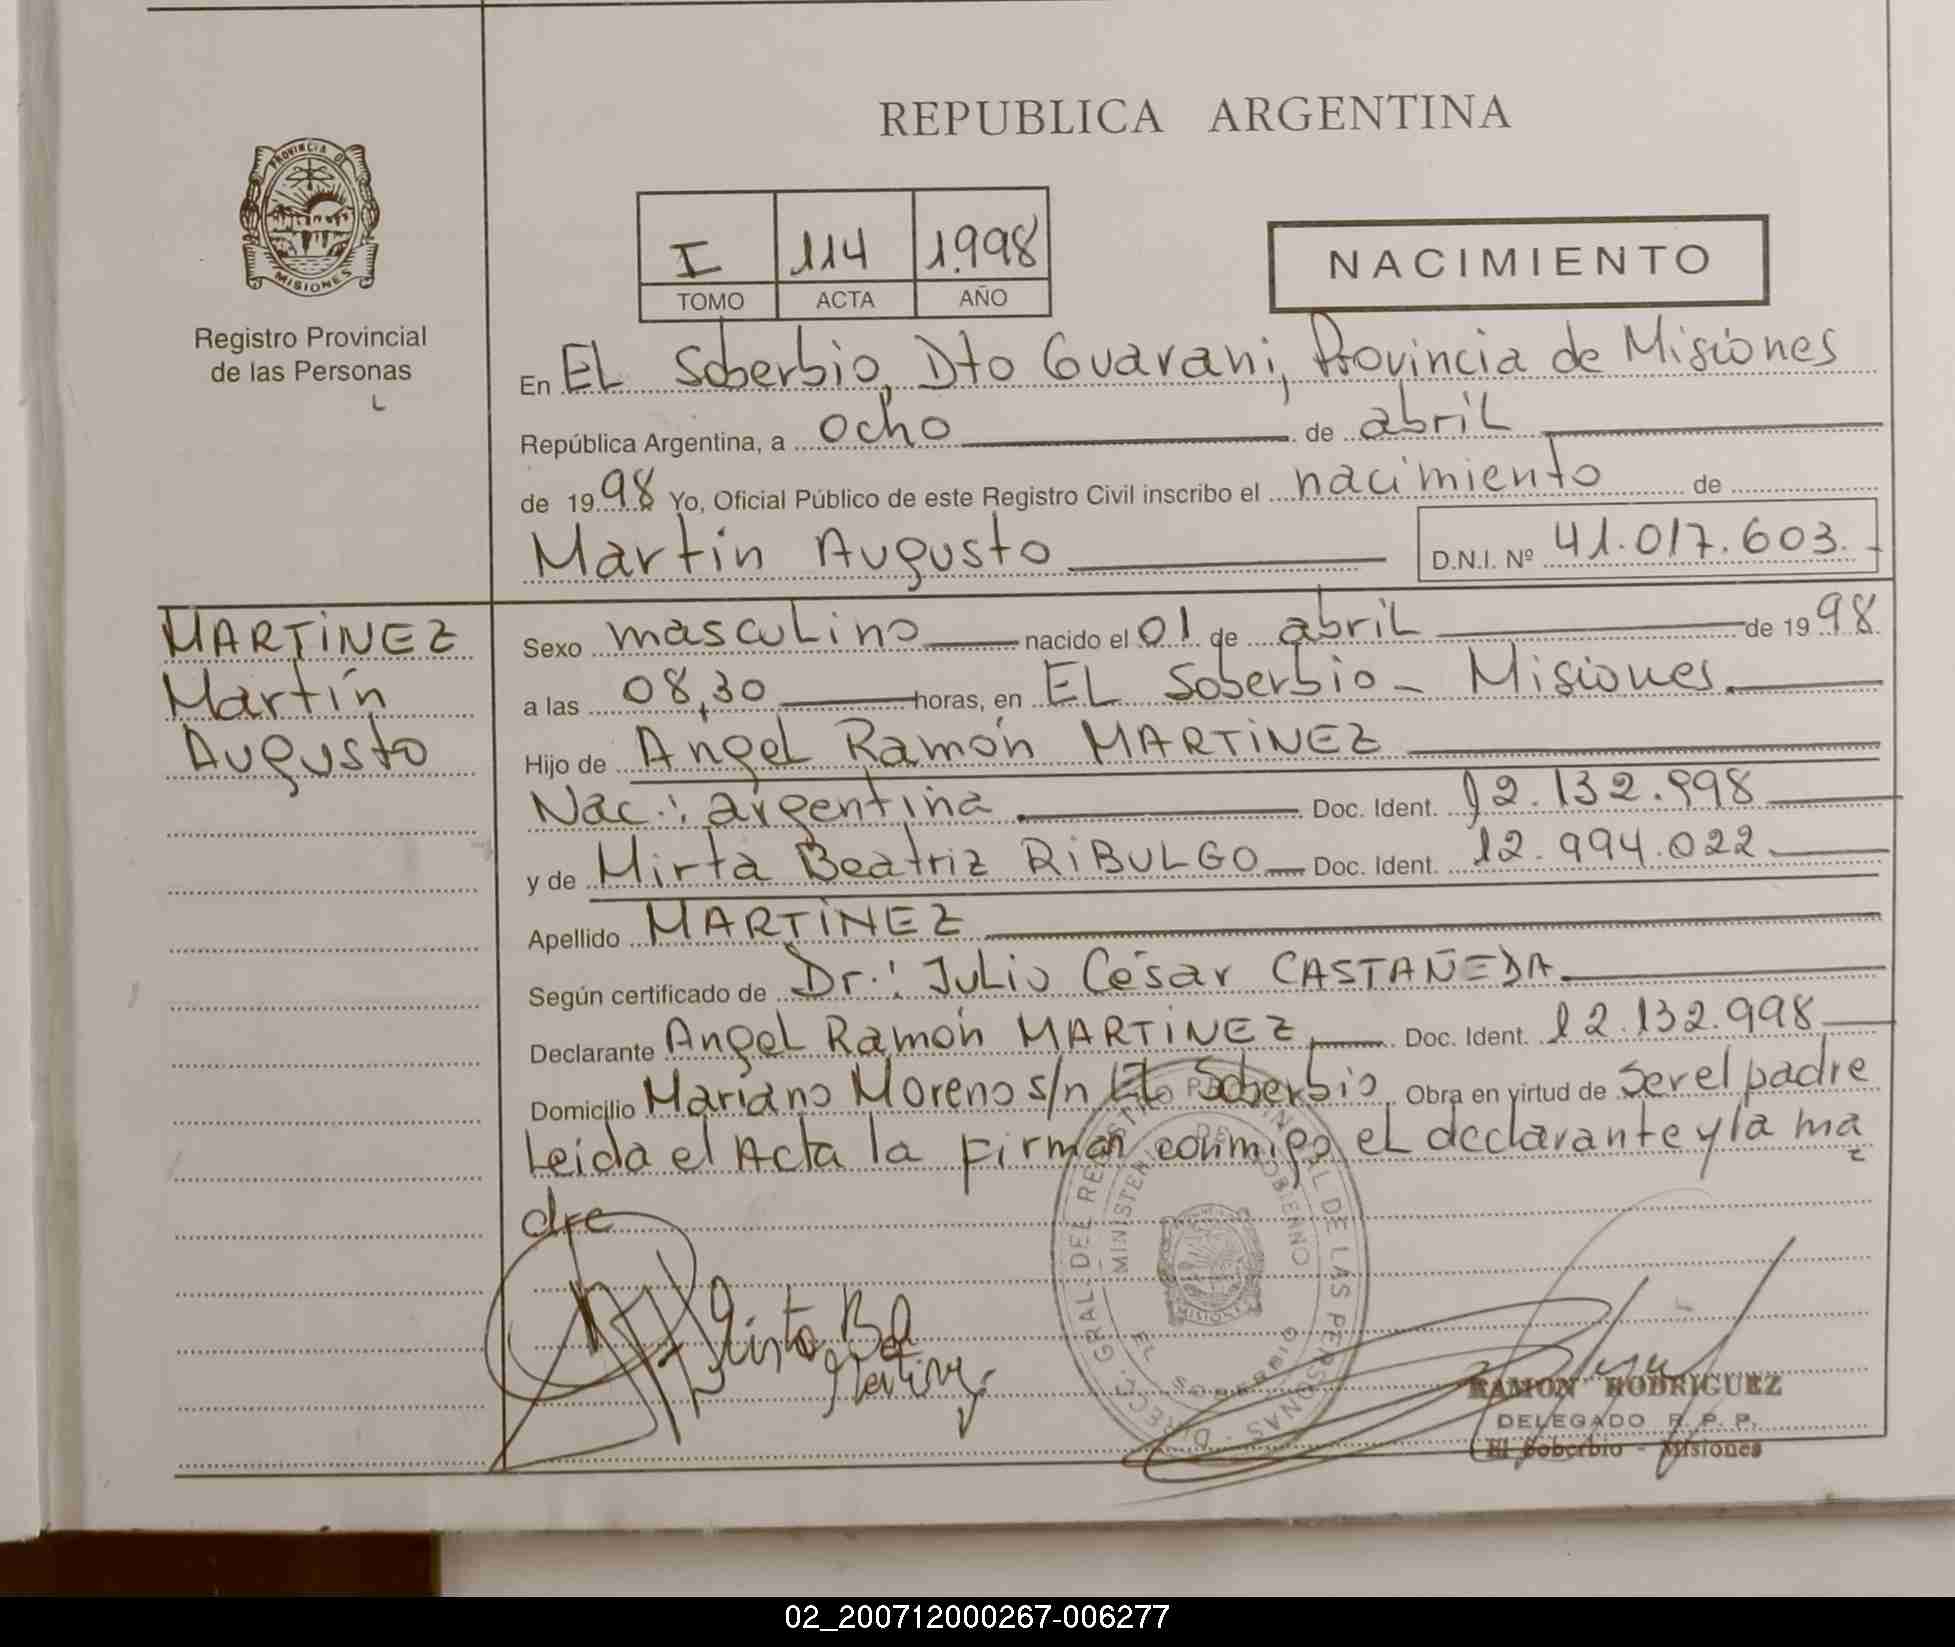 REPUBLICA ARGENTINA
PROVINCIA DE MISIONES
Registro Provincial
de las Personas
I 114 1.998
TOMO ACTA AÑO
NACIMIENTO
En EL Soberbio, Dto Guarani, Provincia de Misiones
República Argentina, a ocho de abril
de 1998 Yo, Oficial Público de este Registro Civil inscribo el nacimiento de
Martín Augusto D.N.I. Nº 41.017.603.-
MARTINEZ
Martín
Augusto
Sexo masculino nacido el 01 de abril de 1998
a las 08,30 horas, en EL Soberbio - Misiones
Hijo de Angel Ramón MARTINEZ
Nac.: argentina Doc. Ident. 12.132.998
y de Mirta Beatriz RIBULGO Doc. Ident. 12.994.022
Apellido MARTINEZ
Según certificado de Dr.: Julio César CASTAÑEDA
Declarante Angel Ramón MARTINEZ Doc. Ident. 12.132.998
Domicilio Mariano Moreno s/n EL Soberbio Obra en virtud de ser el padre
Leida el Acta la firman conmigo el declarante y la ma
dre
DIRECC. GRAL. DEL REGISTRO PROVINCIAL DE LAS PERSONAS
MINISTERIO DE GOBIERNO
MISIONES
EL SOBERBIO
RAMON RODRIGUEZ
DELEGADO R. P. P.
El Soberbio - Misiones
02_200712000267-006277